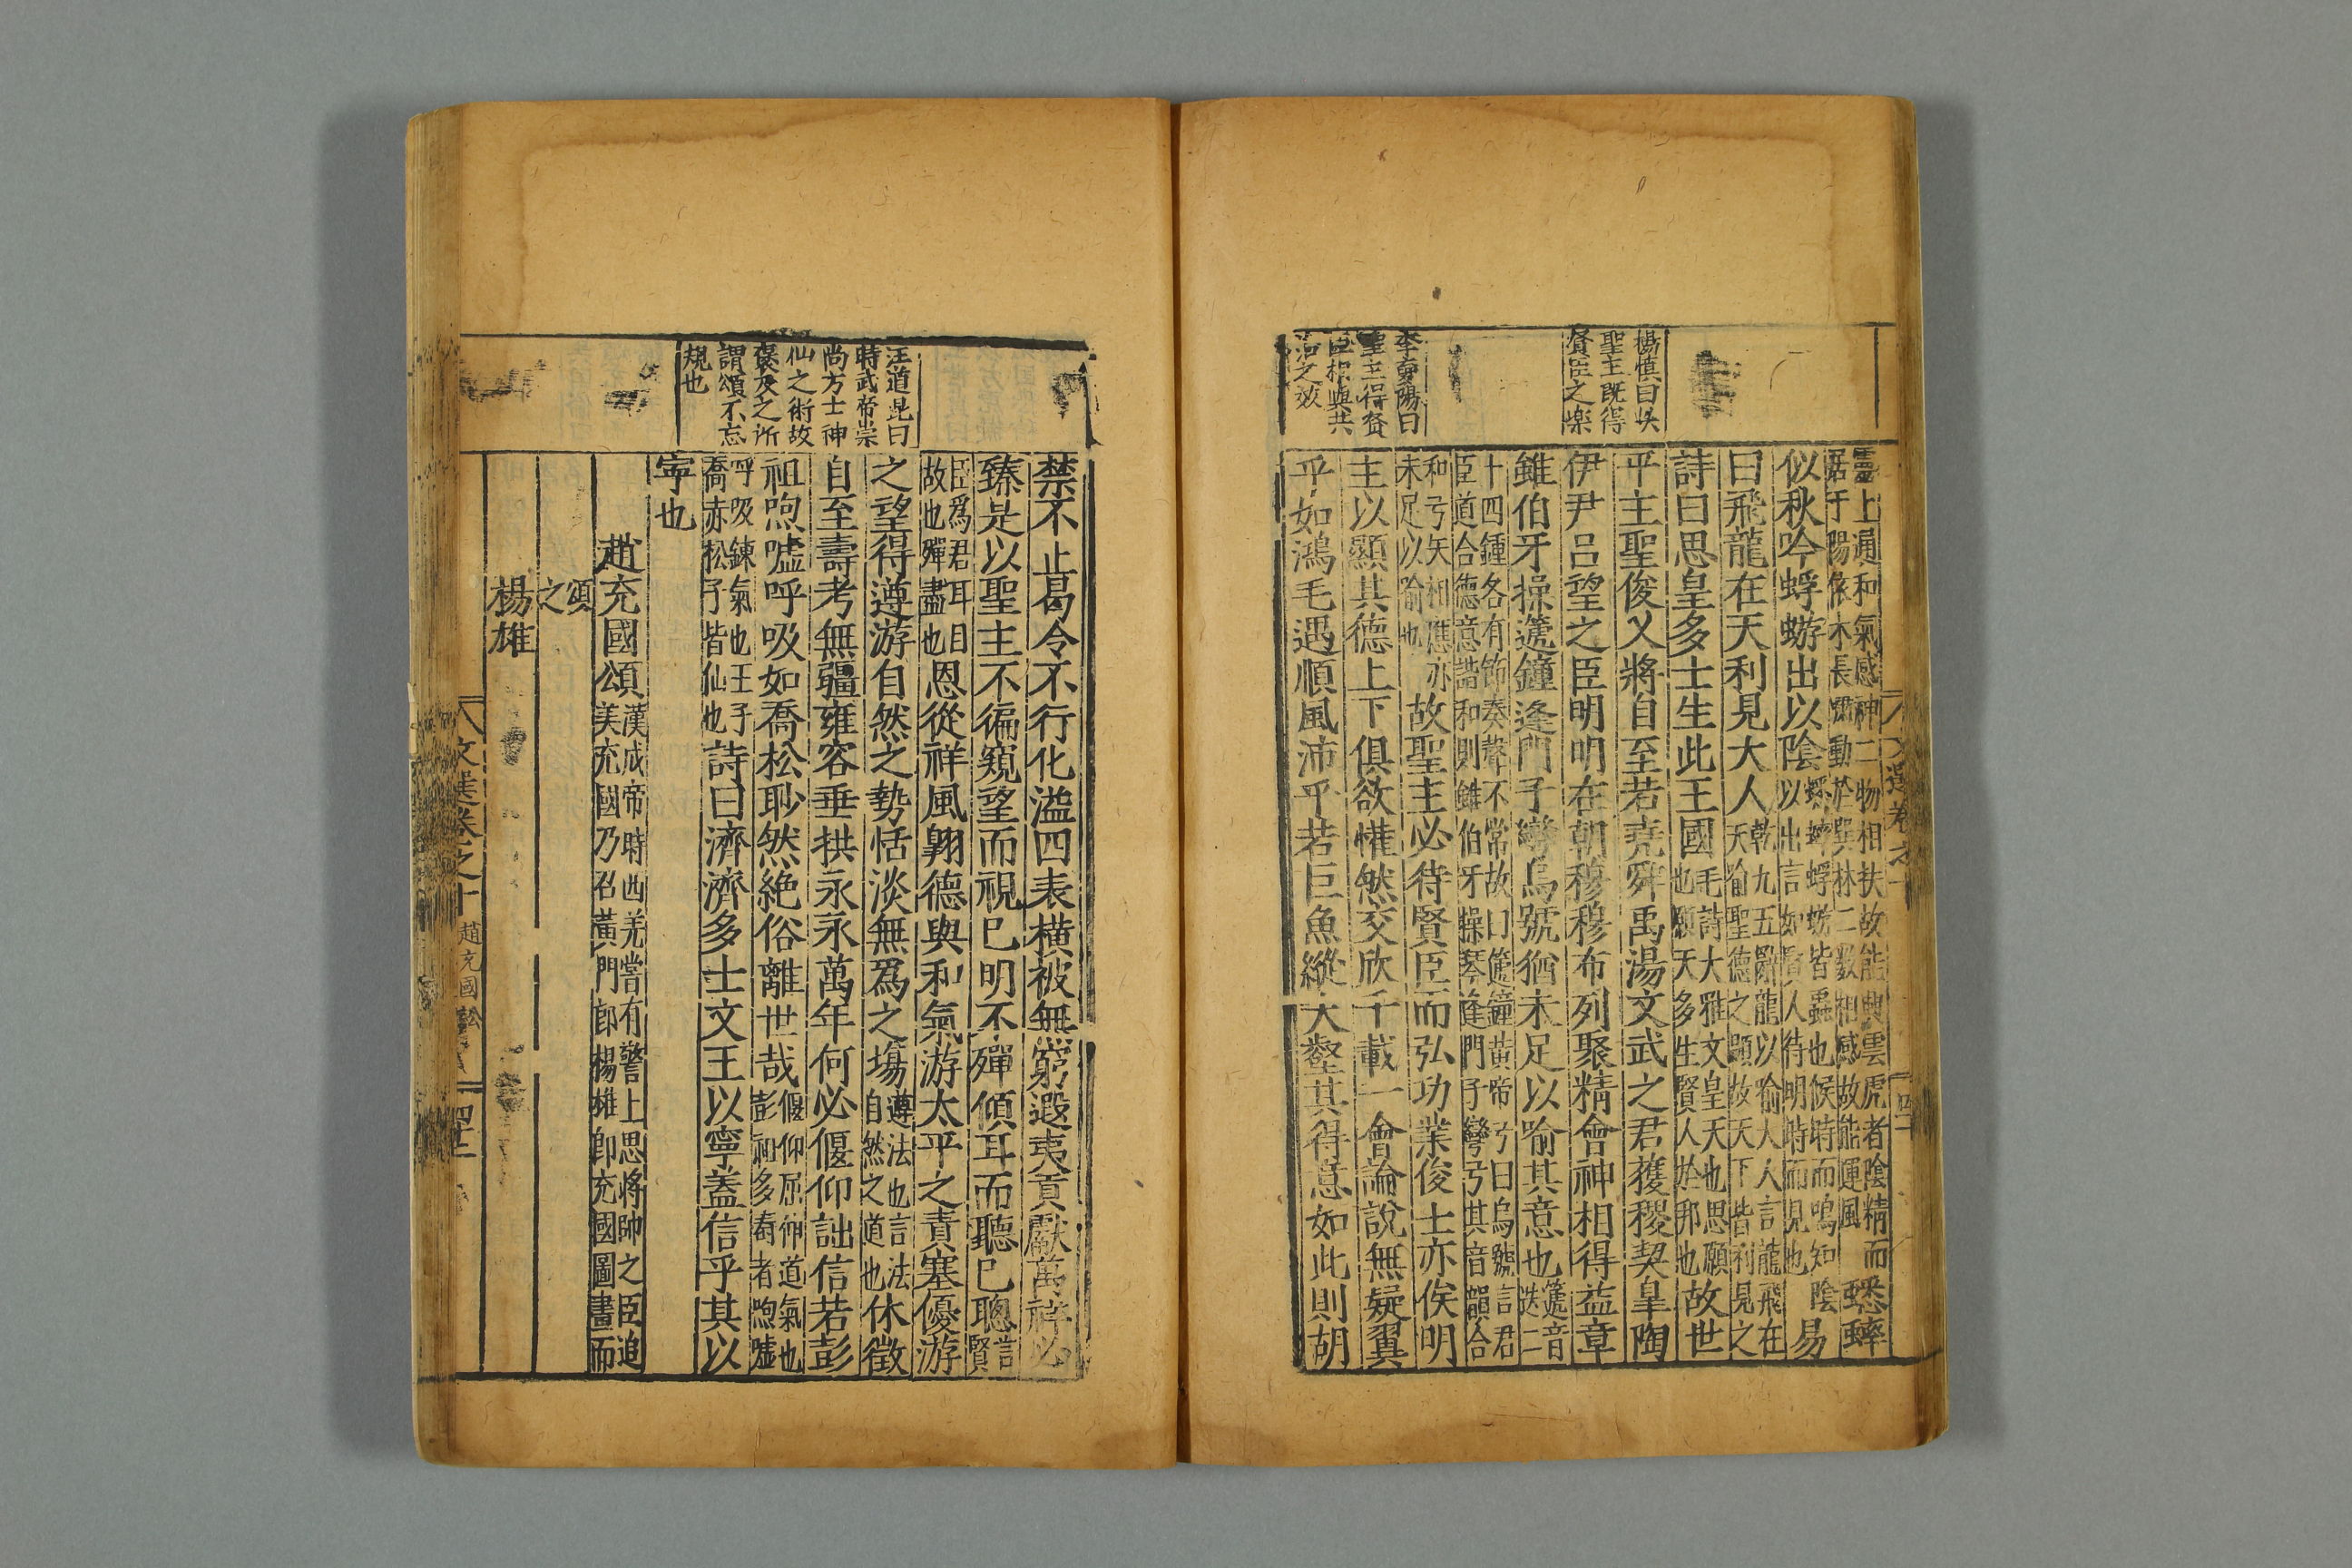 楊慎曰此
聖主既得
賢臣之樂
李夢陽曰
聖主得賢
臣相與共
治之效
靈上通和氣感神二物相扶故能興雲虎者陰精而
居于陽依木長嘯動於巽林二數相感故能運風
蟋蟀
似秋吟蜉蝣出以陰
蟋蟀蜉蝣皆蟲也候時而鳴知陰
以出言如賢人待明時而見也
易
曰飛龍在天利見大人
乾九五辭龍以喻大人言龍飛在
天喻聖德之顯故天下皆利見之
詩曰思皇多士生此王國
毛詩大雅文皇天也思願
也願天多生賢人於邦也
故世
平主聖俊乂將自至若堯舜禹湯文武之君獲稷契皐陶
伊尹呂望之臣明明在朝穆穆布列聚精會神相得益章
雖伯牙操遞鐘逢門子彎烏號猶未足以喻其意也
遞音
迭二
十四鍾各有節奏聲不常故曰遞鐘黃帝弓曰烏號言君
臣道合德意諧和則雖伯牙操琴逢門子彎弓其音韻合
和弓矢相應亦
未足以喻也
故聖主必待賢臣而弘功業俊士亦俟明
主以顯其德上下俱欲懽然交欣千載一會論說無疑翼
乎如鴻毛遇順風沛乎若巨魚縱大壑其得意如此則胡
汪道昆曰
時武帝崇
尚方士神
仙之術故
襃及之所
謂頌不忘
規也
禁不止曷令不行化溢四表橫被無窮遐夷貢獻萬祥必
臻是以聖主不徧窺望而視已明不殫傾耳而聽已聰
言
賢
臣爲君耳目
故也殫盡也
恩從祥風翱德與和氣游太平之責塞優游
之望得遵游自然之勢恬淡無爲之塲
遵法也言法
自然之道也
休徵
自至壽考無疆雍容垂拱永永萬年何必偃仰詘信若彭
祖呴噓呼吸如喬松眇然絶俗離世哉
偃仰屈伸道氣也
彭祖多壽者呴噓
呼吸鍊氣也王子
喬赤松子皆仙也
詩曰濟濟多士文王以寧蓋信乎其以
寧也
趙充國頌
漢成帝時西羌嘗有警上思將帥之臣追
美充國乃召黃門郎楊雄卽充國圖畫而
頌
之
楊雄
文選卷之十 趙充國頌